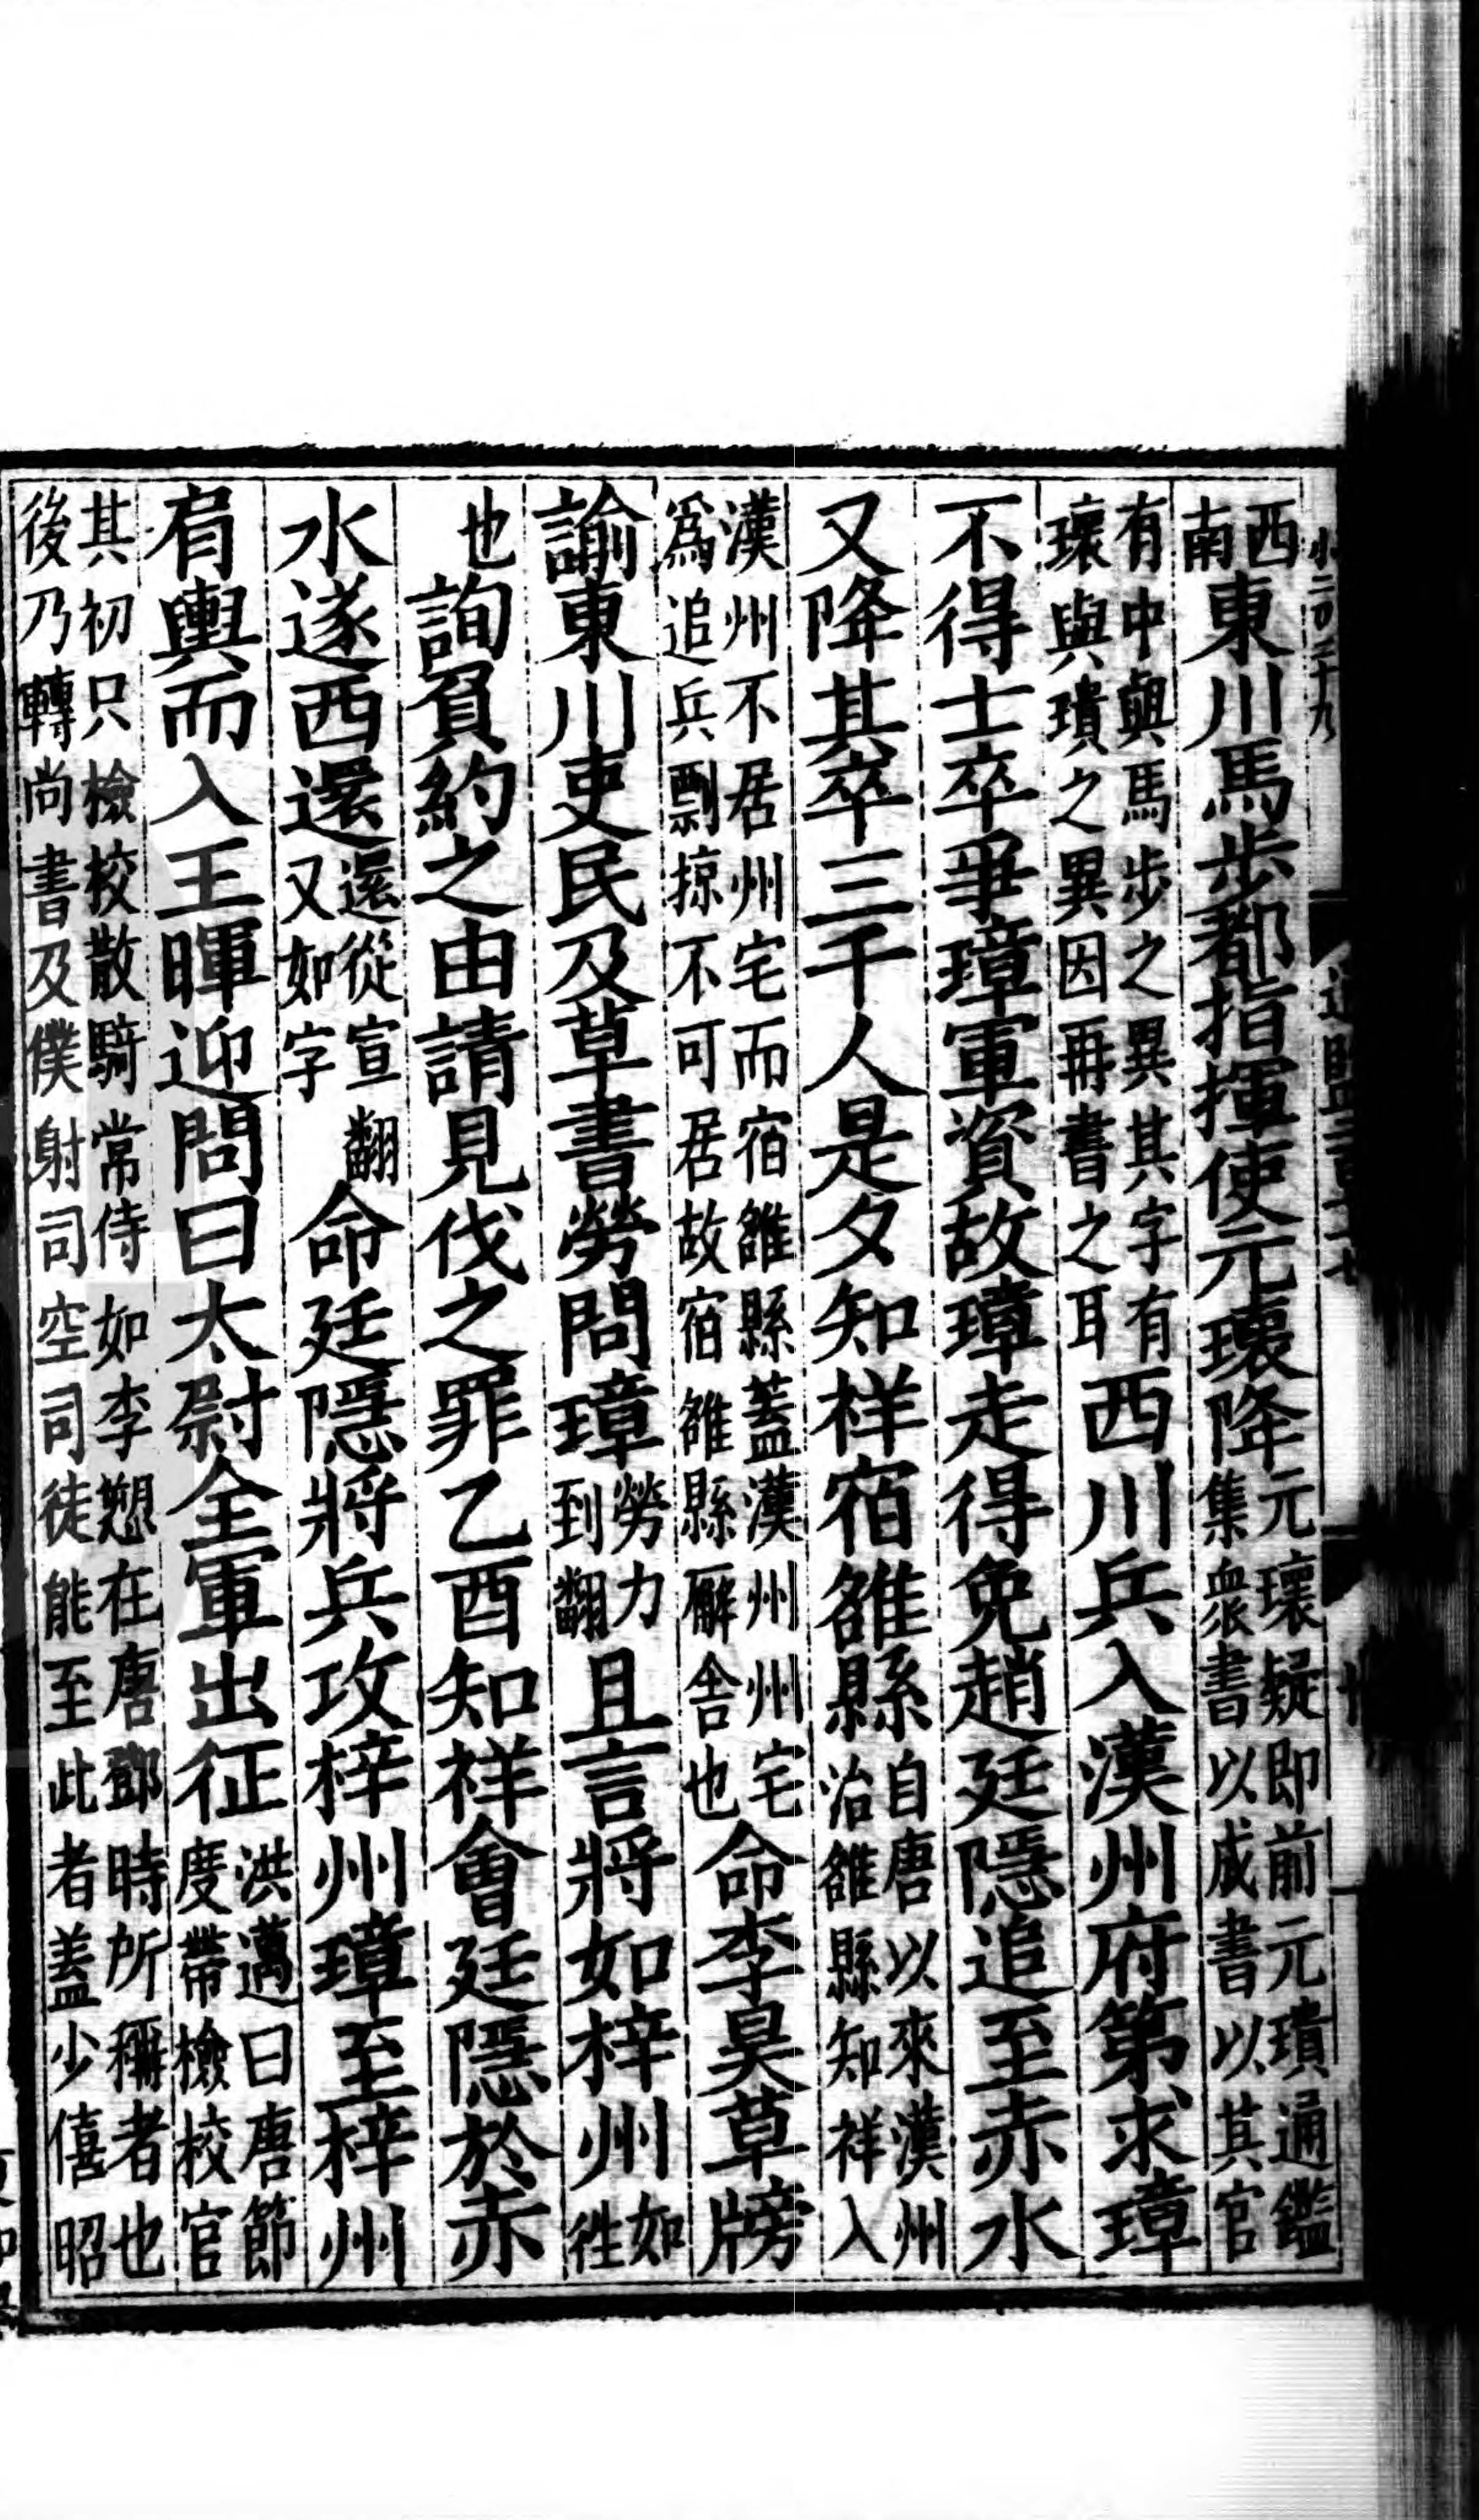 西南東川馬步都指揮使元瓌降元瓌疑即前元璝通鑑集衆書以成書以其官
有中與馬步之異其字有瓌與璝之異因再書之耳西川兵入漢州府第求璋
不得士卒爭璋軍資故璋走得免趙廷隱追至赤水
又降其卒三千人是夕知祥宿雒縣自唐以來漢州治雒縣知祥入
漢州不居州宅而宿雒縣蓋漢州州宅爲追兵剽掠不可居故宿雒縣廨舍也命李昊草牓
諭東川吏民及草書勞問璋勞力到翻且言將如梓州如徃
也詢負約之由請見伐之罪乙酉知祥會廷隱於赤
水遂西還還從宣翻又如字命廷隱將兵攻梓州璋至梓州
肩輿而入王暉迎問曰太尉全軍出征洪邁曰唐節度帶檢校官
其初只檢校散騎常侍如李愬在唐鄧時所稱者也後乃轉尚書及僕射司空司徒能至此者蓋少僖昭